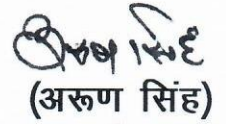 अरूण सिंह
(अरूण सिंह)